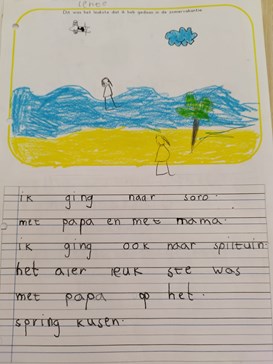 Dit was het leukste dat ik heb gedaan in de zomervakantie
ik ging naar soro
met papa en met mama.
ik ging ook naar spiltuin
het aler leuk ste was
met papa op het.
spring kusen.